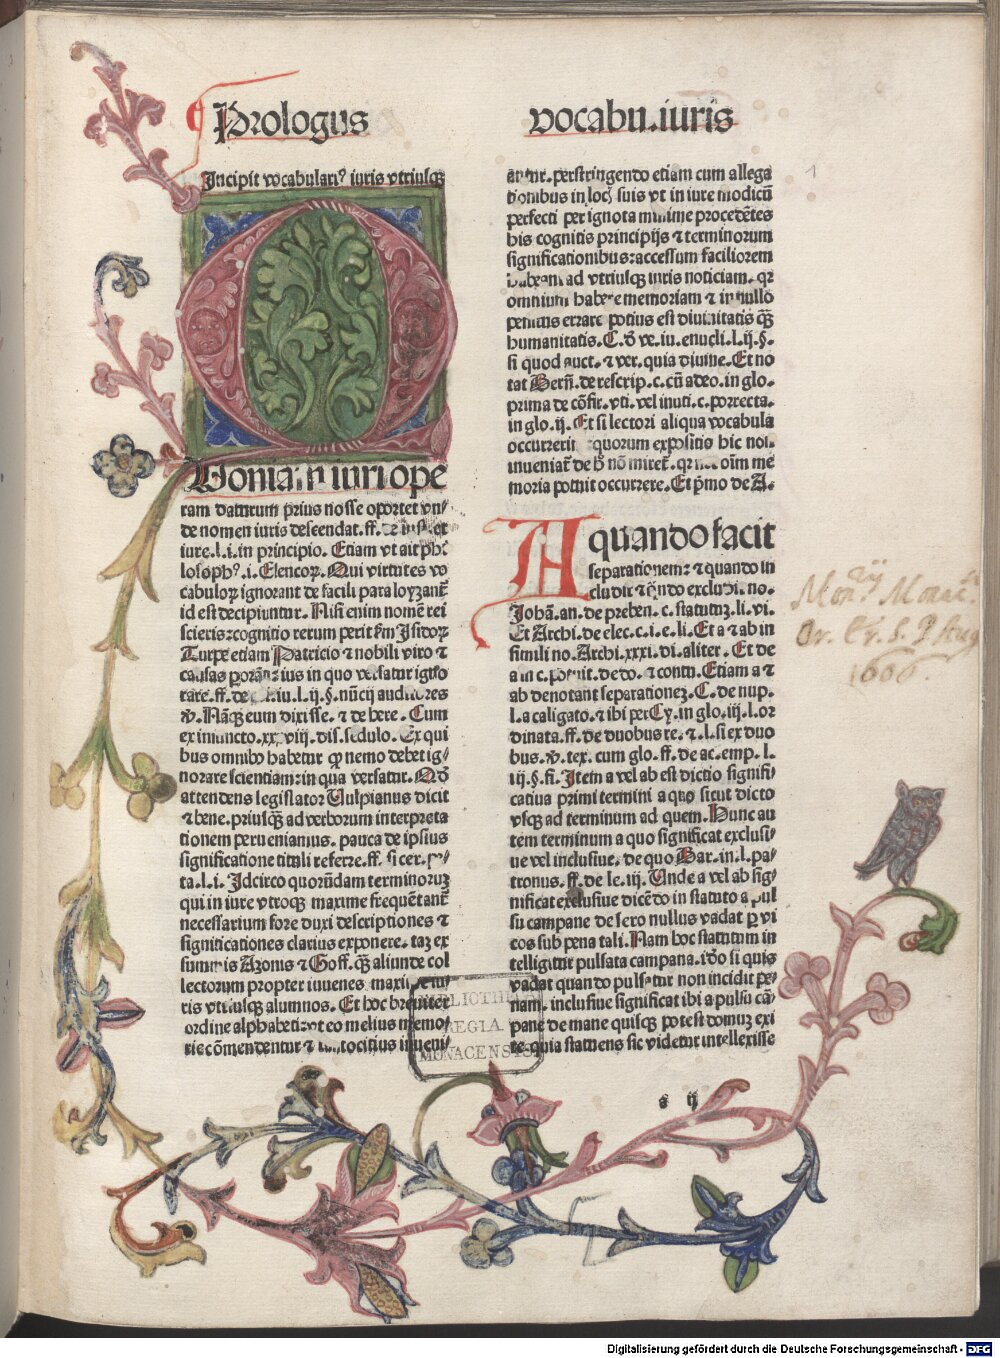 Prologus
vocabu.iuris
Incipit vocabulariꝰ iuris vtriusqꝫ
Voniam iuri ope
ram daturum prius nosse oportet vn⸗
de nomen iuris descendat. ff. de iust. et
iure. l. i. in principio. Etiam vt ait phi
losophꝰ. i. Elencoꝝ. Qui virtutes vo
cabuloꝝ ignorant de facili paraloyzant̄
id est decipiuntur. Nisi enim nomē rei
scieris: cognitio rerum perit ẜm Isidoꝝ
Turpe etiam Patricio ⁊ nobili viro ⁊
causas ius in quo versatur igno
rare. ff. de iu. l. ij. §. auditores
Nāqꝫ eum dixisse. ⁊ debere. Cum
ex iniuncto. xxxviij. dis. sedulo. Ex qui
bus omnibꝰ habetur ꝙ nemo debet ig⸗
norare scientiam: in qua versatur. Qd̓
attendens legislator Vulpianus dicit
⁊ bene. priusqꝫ ad verborum interpreta
tionem perueniamus. pauca de ipsius
significatione tituli referre. ff. si cer. pe⸗
ta. l. i. Idcirco quorūdam terminoruꝫ
qui in iure vtroqꝫ maxime frequētant̄
necessarium fore duxi descriptiones ⁊
significationes clarius exponere. taꝫ ex
summis Azonis ⁊ Goff. qꝫ aliunde col
lectorum propter iuuenes maxime iu⸗
ris vtriusqꝫ alumnos. Et hoc breuiter
ordine alphabeti: vt eo melius memo⸗
rie cōmendentur ⁊ tocitius inueni⸗
antur. perstringendo etiam cum allega
tionibus in locꝭ suis vt in iure modicū
perfecti per ignota minime procedētes
his cognitis principijs ⁊ terminorum
significationibus: accessum faciliorem
habeant ad vtriusqꝫ iuris noticiam. qꝛ
omnium habere memoriam ⁊ in nullo
penitus errare potius est diuinitatis qꝫ
humanitatis. C. d̓ ve. iu. enucli. l. ij. §.
si quod auct. ⁊ ver. quia diuine. Et no
tat Berñ. de rescrip. c. cū adeo. in glo.
prima de cōfir. vti. vel inuti. c. porrecta.
in glo. ij. Et si lectori aliqua vocabula
occurrerit quorum expositio hic non
inueniat̄ de h̓ nō miret̄. qꝛ oīm me
moria potuit occurrere. Et p̓mo de A.
A quando facit
separationem: ⁊ quando in
cludit ⁊ qn̄do excludi. no.
Johā. an. de preben. c. statutuꝫ. li. vi.
Et Archi. de elec. c. i. e. li. Et a ⁊ ab in
simili no. Archi. xxxi. di. aliter. Et de
a in c. potuit. de do. ⁊ contu. Etiam a ⁊
ab denotant separationeꝫ. C. de nup.
l. a caligato. ⁊ ibi per Cy. in glo. iij. l. or
dinata. ff. de duobus re. ⁊. l. si ex duo
bus. ꝟ. tex. cum glo. ff. de ac. emp. l.
iij. §. fi. Item a vel ab est dictio signifi⸗
catiua primi termini a quo sicut dicto
vsqꝫ ad terminum ad quem. Hunc au
tem terminum a quo significat exclusi⸗
ue vel inclusiue. de quo Bar. in. l. pa⸗
tronus. ff. de le. iij. Unde a vel ab sig⸗
nificat exclusiue dicēdo in statuto a pul
su campane de sero nullus vadat ꝑ vi
cos sub pena tali. Nam hoc statutum in
telligitur pulsata campana. iđo si quis
vadat quando pulsatur non incidit pe⸗
nam. inclusiue significat ibi a pulsu cā⸗
pane de mane quisqꝫ potest domuꝫ exi
re. quia statuens sic videtur intellexisse
a ij
1
Monrij Monac.
Or. Er. S. P. Aug
1606.
BIBLIOTHECA
REGIA
MONACENSIS
Digitalisierung gefördert durch die Deutsche Forschungsgemeinschaft - DFG